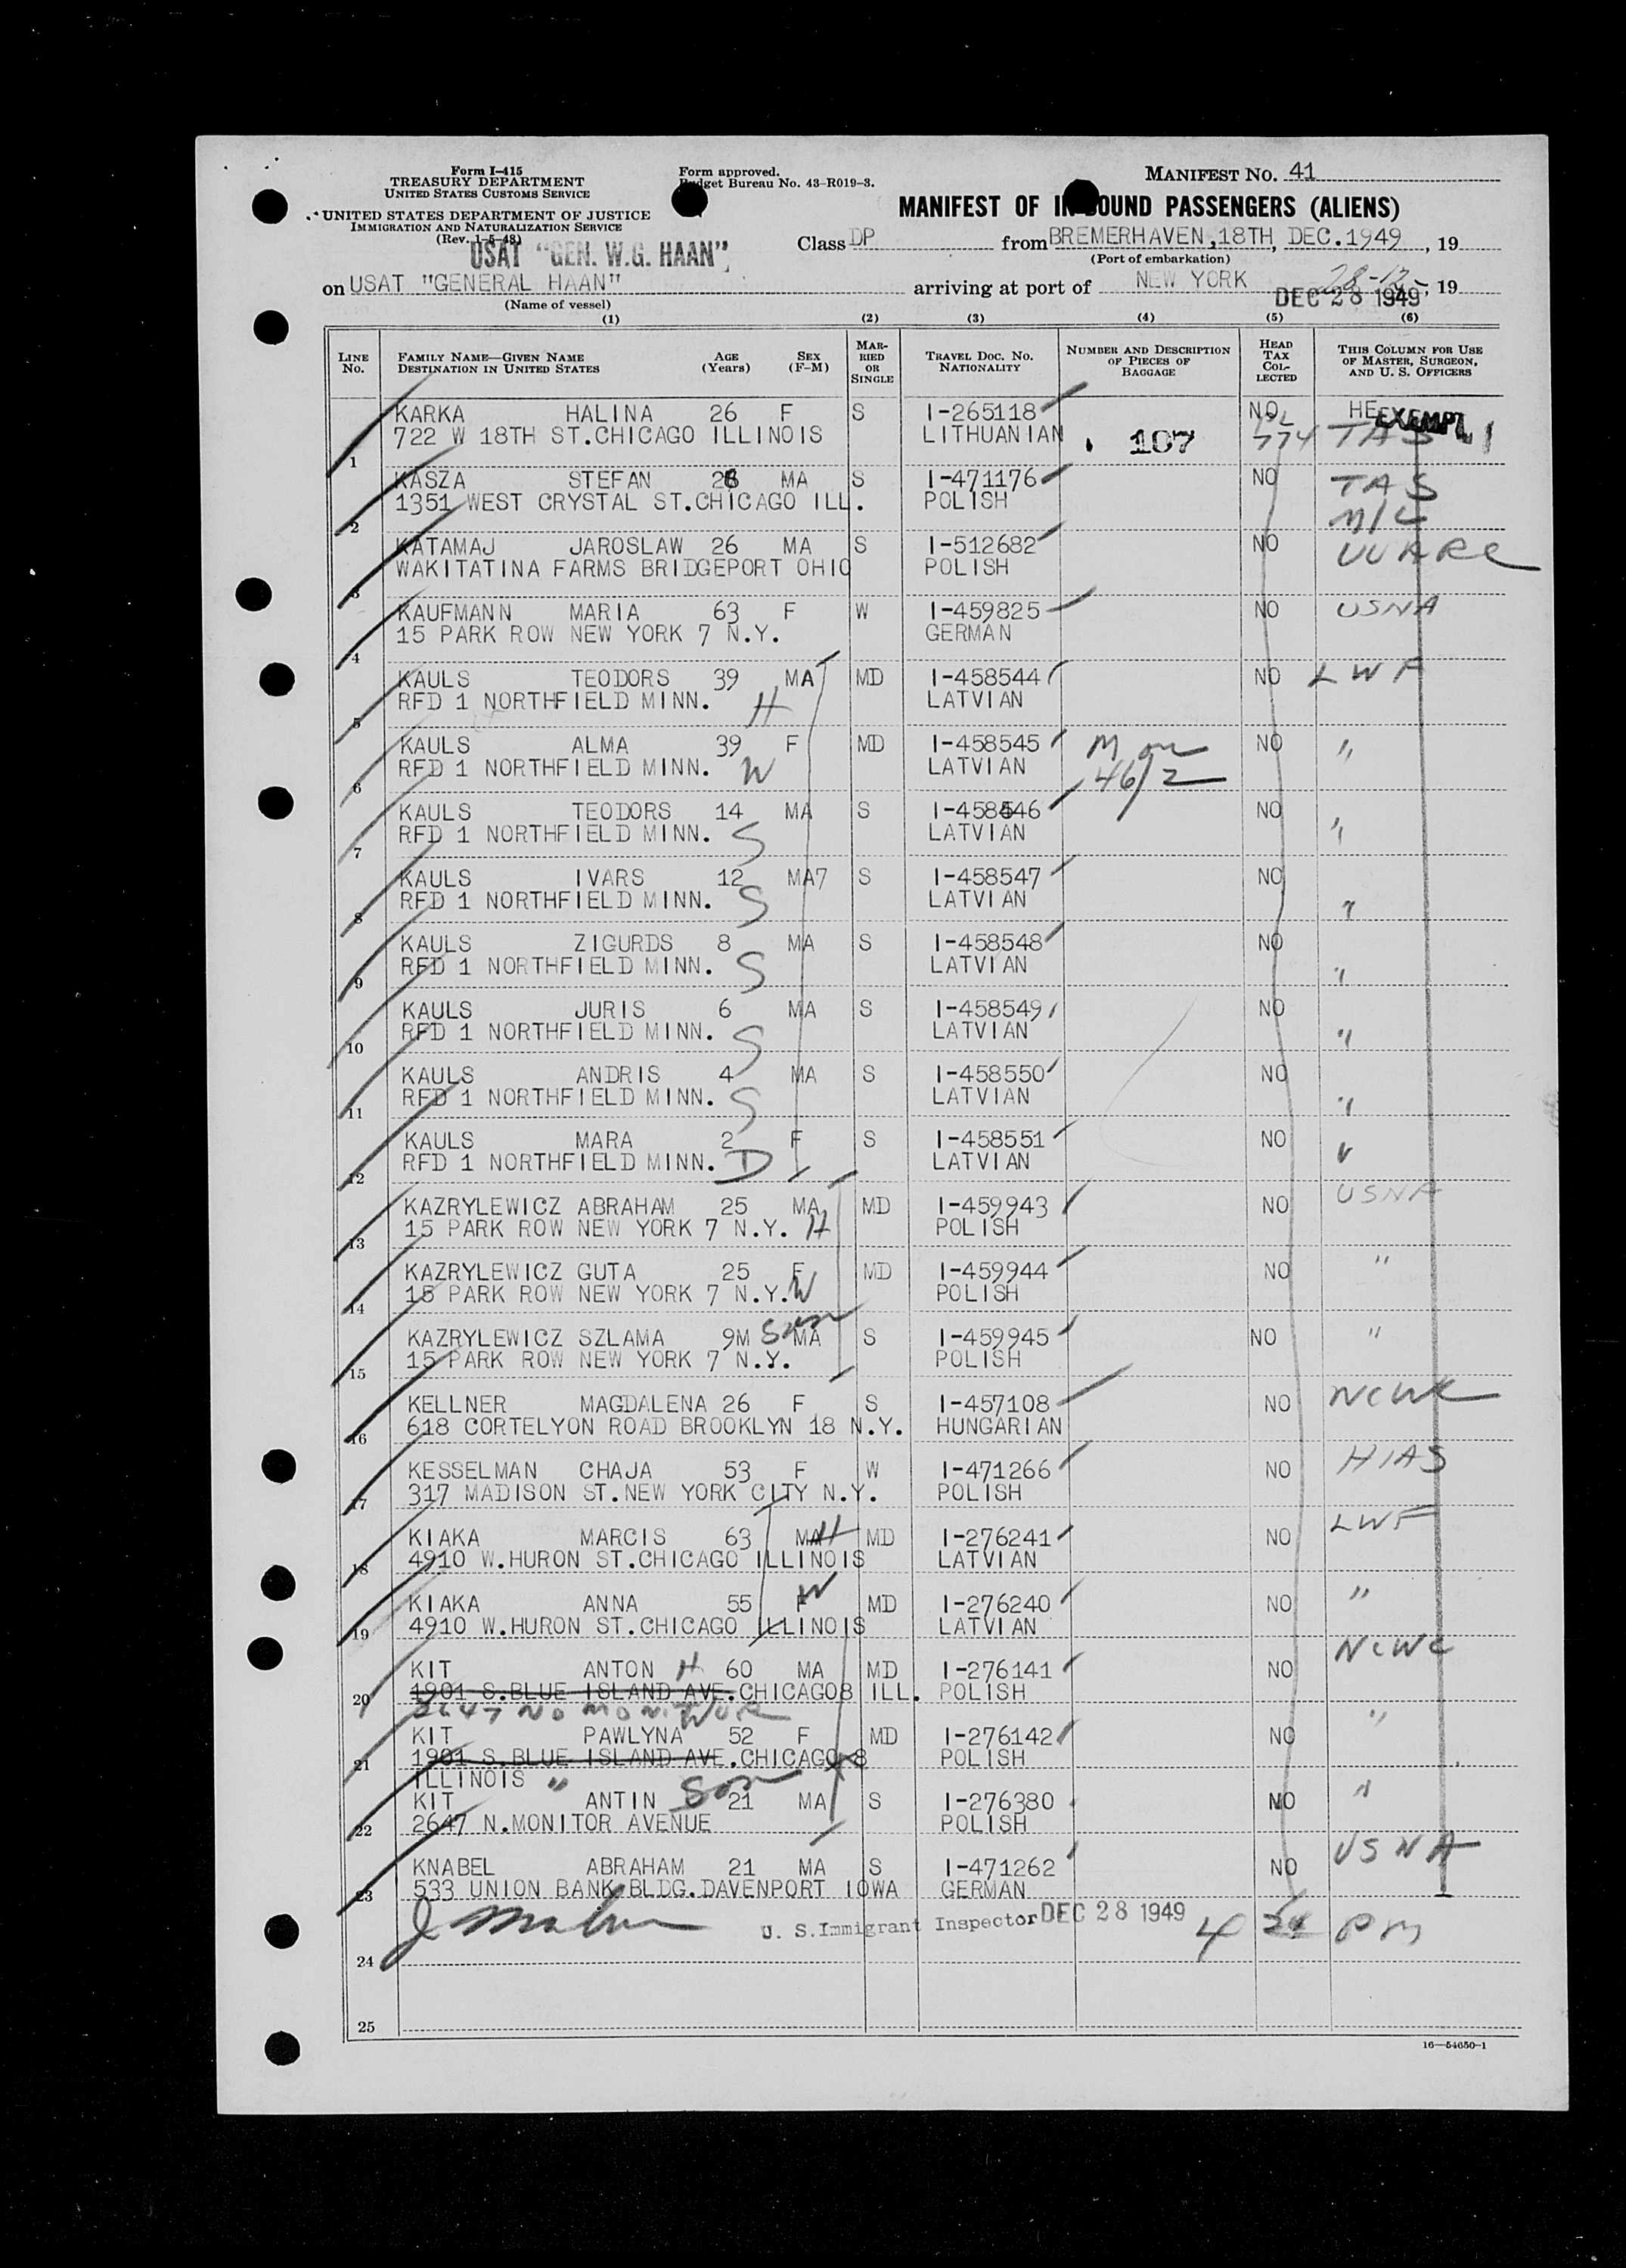 Form I-415
TREASURY DEPARTMENT
UNITED STATES CUSTOMS SERVICE
UNITED STATES DEPARTMENT OF JUSTICE
IMMIGRATION AND NATURALIZATION SERVICE
(Rev. 1-5-48)
Form approved.
Budget Bureau No. 43-R019-3.
MANIFEST NO. 41
MANIFEST OF INBOUND PASSENGERS (ALIENS)
USAT "GEN. W.G. HAAN"
Class DP from BREMERHAVEN,18TH, DEC.1949, 19
(Port of embarkation)
on USAT "GENERAL HAAN" arriving at port of NEW YORK 28-12-, 19
DEC 28 1949
(Name of vessel)
(1) (2) (3) (4) (5) (6)
LINE No. FAMILY NAME—GIVEN NAME DESTINATION IN UNITED STATES AGE (Years) SEX (F-M) MARRIED OR SINGLE TRAVEL DOC. NO. NATIONALITY NUMBER AND DESCRIPTION OF PIECES OF BAGGAGE HEAD TAX COLLECTED THIS COLUMN FOR USE OF MASTER, SURGEON, AND U. S. OFFICERS
KARKA HALINA 26 F S I-265118 NO EXEMPT
1 722 W 18TH ST.CHICAGO ILLINOIS LITHUANIAN 107 774 TAS
KASZA STEFAN MA S I-471176 NO TAS
2 1351 WEST CRYSTAL ST.CHICAGO ILL. POLISH
KATAMAJ JAROSLAW 26 MA S I-512682 NO
3 WAKITATINA FARMS BRIDGEPORT OHIO POLISH
KAUFMANN MARIA 63 F W I-459825 NO USNA
4 15 PARK ROW NEW YORK 7 N.Y. GERMAN
KAULS TEODORS 39 MA MD I-458544 NO LWF
5 RFD 1 NORTHFIELD MINN. H LATVIAN
KAULS ALMA 39 F MD I-458545 NO "
6 RFD 1 NORTHFIELD MINN. W LATVIAN 46/2
KAULS TEODORS 14 MA S I-458546 NO "
7 RFD 1 NORTHFIELD MINN. S LATVIAN
KAULS IVARS 12 MA7 S I-458547 NO "
8 RFD 1 NORTHFIELD MINN. S LATVIAN
KAULS ZIGURDS 8 MA S I-458548 NO "
9 RFD 1 NORTHFIELD MINN. S LATVIAN
KAULS JURIS 6 MA S I-458549 NO "
10 RFD 1 NORTHFIELD MINN. S LATVIAN
KAULS ANDRIS 4 MA S I-458550 NO "
11 RFD 1 NORTHFIELD MINN. S LATVIAN
KAULS MARA 2 F S I-458551 NO "
12 RFD 1 NORTHFIELD MINN. D LATVIAN
KAZRYLEWICZ ABRAHAM 25 MA MD I-459943 NO USNA
13 15 PARK ROW NEW YORK 7 N.Y. H POLISH
KAZRYLEWICZ GUTA 25 F MD I-459944 NO "
14 15 PARK ROW NEW YORK 7 N.Y. W POLISH
KAZRYLEWICZ SZLAMA 9M Son MA S I-459945 NO "
15 15 PARK ROW NEW YORK 7 N.Y. POLISH
KELLNER MAGDALENA 26 F S I-457108 NO NCWC
16 618 CORTELYON ROAD BROOKLYN 18 N.Y. HUNGARIAN
KESSELMAN CHAJA 53 F W I-471266 NO HIAS
17 317 MADISON ST.NEW YORK CITY N.Y. POLISH
KIAKA MARCIS 63 MA H MD I-276241 NO LWF
18 4910 W.HURON ST.CHICAGO ILLINOIS LATVIAN
KIAKA ANNA 55 F W MD I-276240 NO "
19 4910 W.HURON ST.CHICAGO ILLINOIS LATVIAN
KIT ANTON H 60 MA MD I-276141 NO NCWC
20 1901 S.BLUE ISLAND AVE.CHICAGO8 ILL. POLISH
2647 NO MONITOR
KIT PAWLYNA W 52 F MD I-276142 NO "
21 1901 S.BLUE ISLAND AVE.CHICAGO 8 POLISH
ILLINOIS "
KIT ANTIN Son 21 MA S I-276380 NO "
22 2647 N.MONITOR AVENUE POLISH
KNABEL ABRAHAM 21 MA S I-471262 NO USNA
23 533 UNION BANK BLDG.DAVENPORT IOWA GERMAN
U. S. Immigrant Inspector DEC 28 1949 4 PM
24
25
16—54650-1